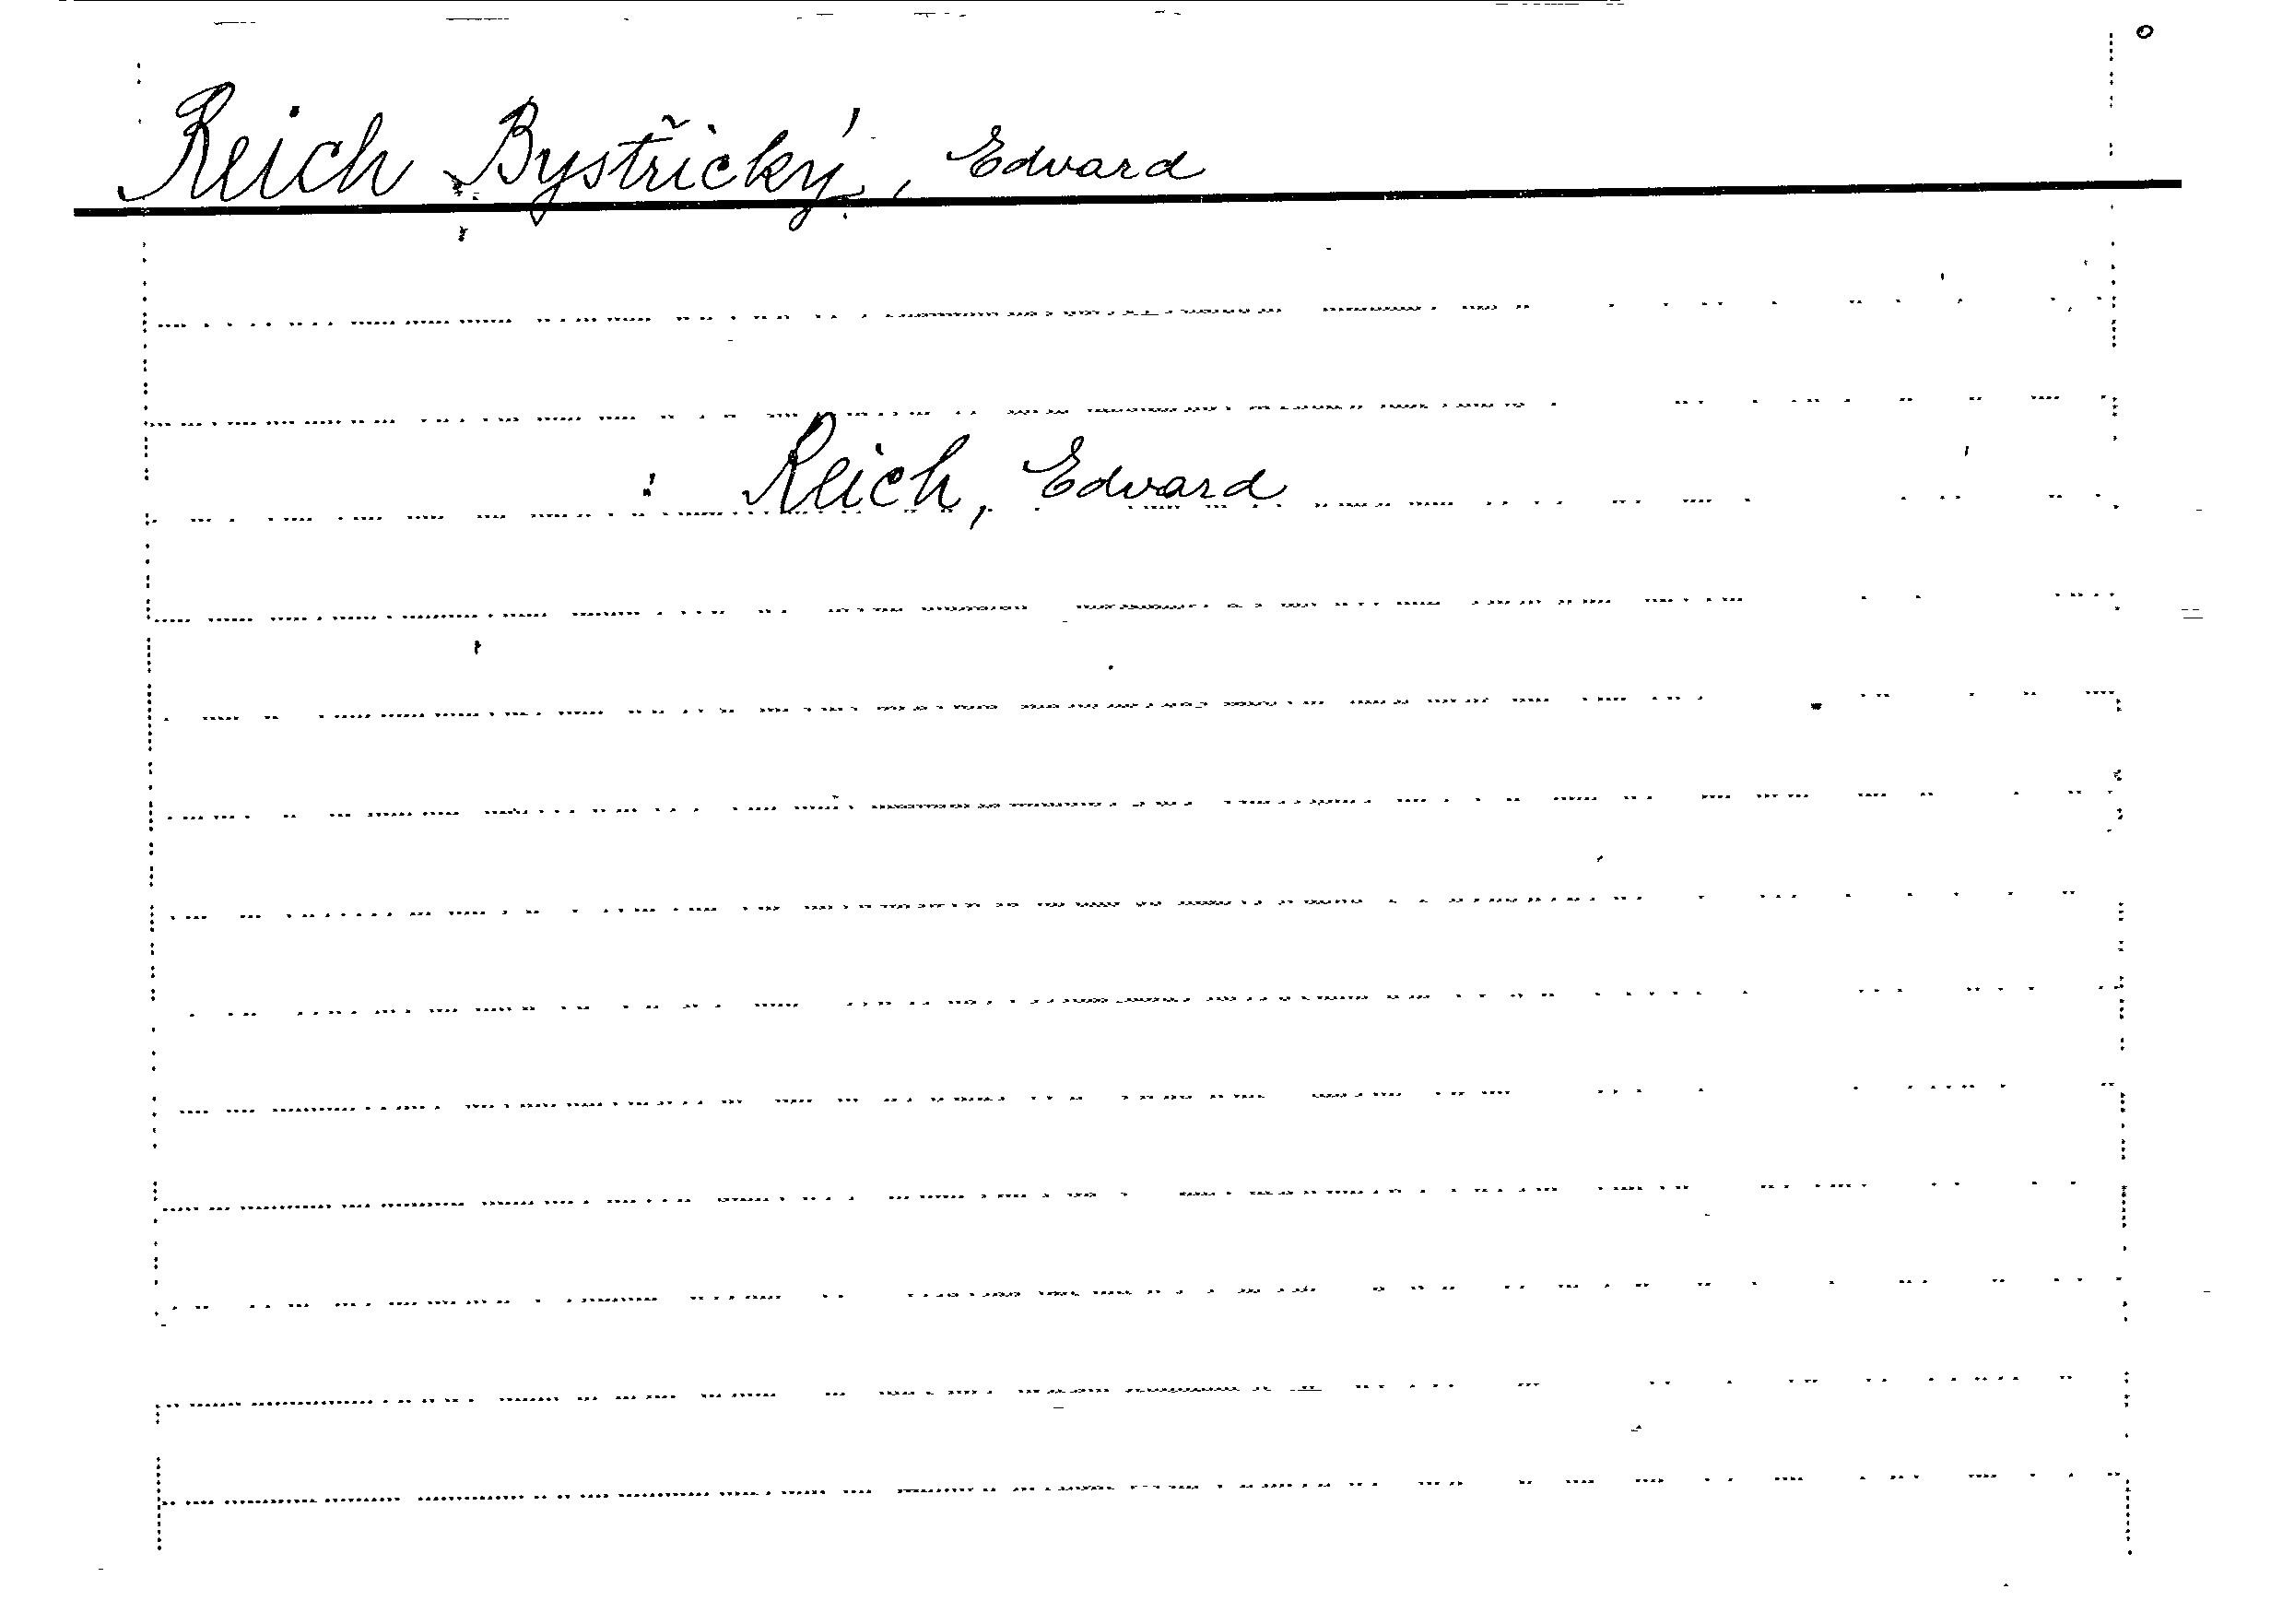 Reich Bystřický, Edvard
: Reich, Edvard